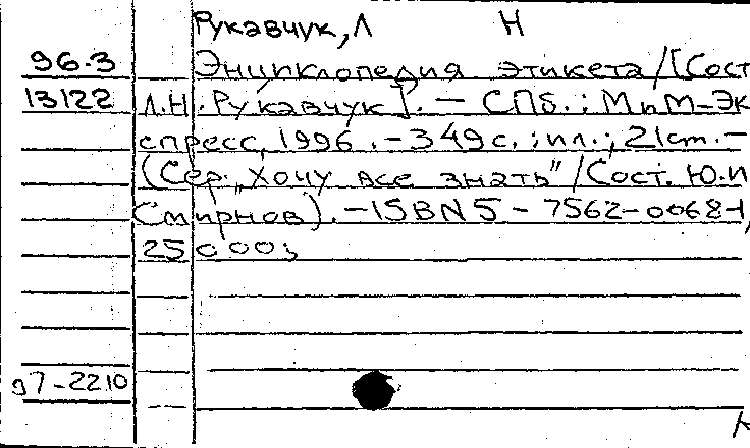 Рукавчук, Л Н
96.3 Энциклопедия этикета / [Сост
13122 Л.Н. Рукавчук]. - СПб.: МиМ-Эк
спресс, 1996. - 349 с.: ил.; 21 cm. -
(Сер. "Хочу все знать" / Сост. Ю.И
Смирнов). - ISBN 5-7562-0068-1,
25000,
97-2210